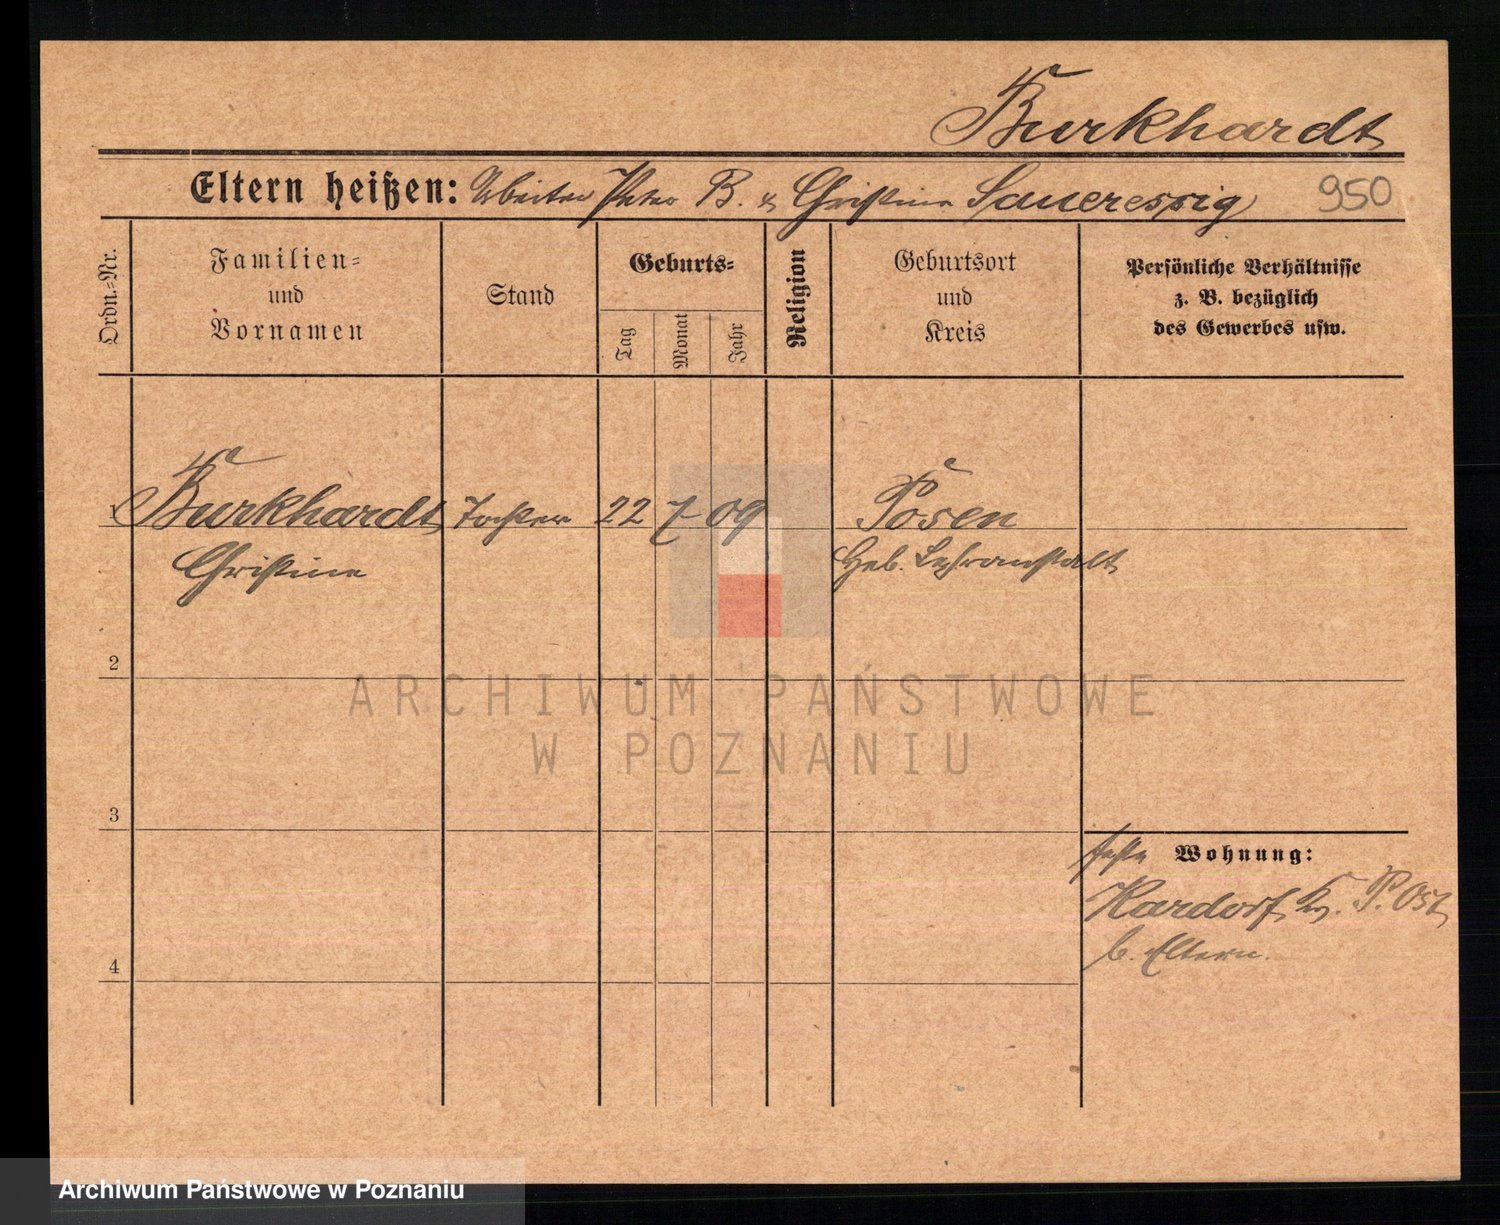 Burkhardt
Eltern heißen: Arbeiter Peter B. & Christine Saueressig 950
Ordn.-Nr.
Familien-
und
Vornamen
Stand
Geburts-
Tag
Monat
Jahr
Religion
Geburtsort
und
Kreis
Persönliche Verhältnisse
z. B. bezüglich
des Gewerbes usw.
1 Burkhardt Tochter 22 7 09 Posen
Christine Heb. Lehranstalt
2
ARCHIWUM PAŃSTWOWE
W POZNANIU
3
feste Wohnung:
Kardorf, Kr. P. Ost
b. Eltern.
4
Archiwum Państwowe w Poznaniu